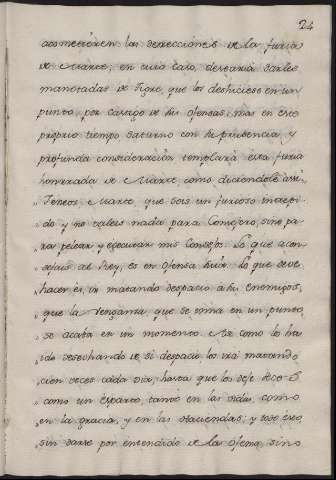 24
acometieren las direcciones de la furia
de Marte, en cuio caso, desearia darles
manotadas de Tigre, que los deshiciese en un
punto, por castigo de sus ofensas, mas en este
proprio tiempo Saturno con su prudencia y
profunda consideracion templará esta furia
honrrada de Marte, como diciendole assi
Teneos, Marte que sois un furioso intrepi-
do y no valeis nada para Consejero, sino pa-
ra pelear, y egecutar mis Consejos. Lo que acon-
sejais al Rey, es en ofensa suia. Lo que deve
hacer es, ir matando despacio a sus enemigos,
que la venganza, que se toma en un punto,
se acaba en un momento. Asi como lo ha
ido desechando de si despacio los irá matando
cien veces cada dia, hasta que los deje
como un esparto, tanto en las vidas, como
en la gracia, y en las Haciendas, y todo esto,
sin darse por entendido de la ofensa, sino